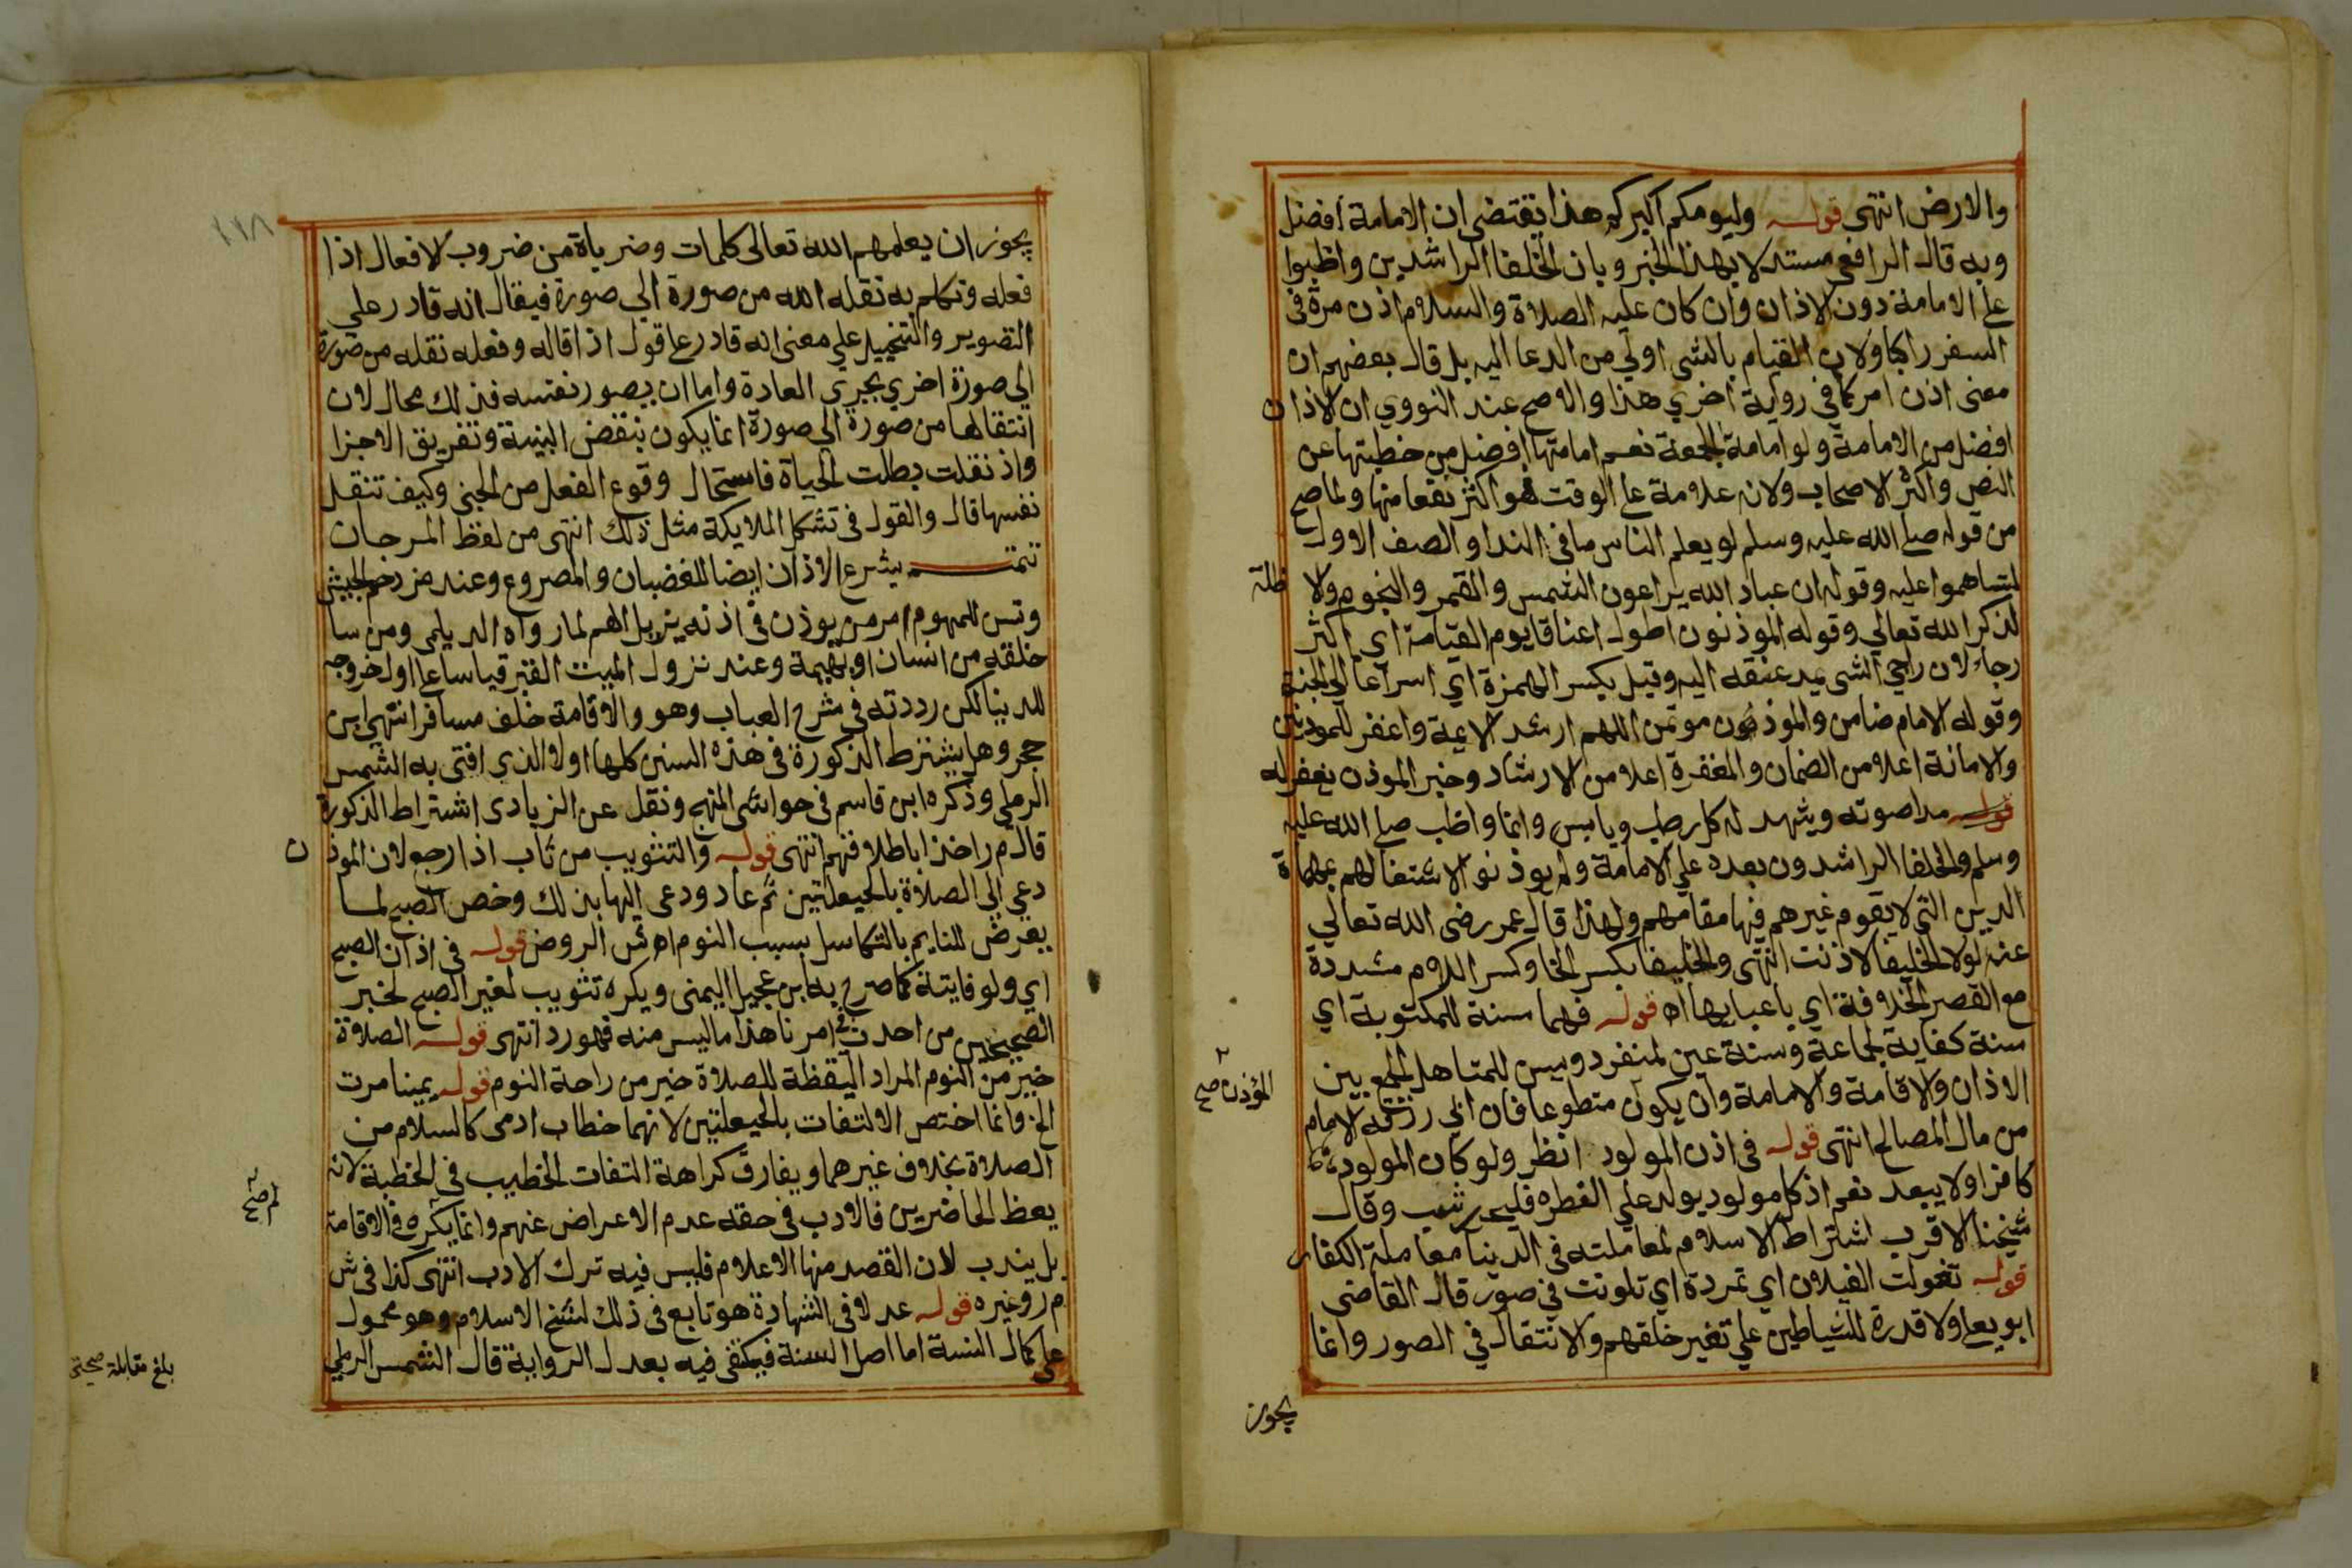 والارض انتهى قوله وليومكم اكبركم هذا يقتضى ان الامامة افضل
وبه قال الرافعى مستدلا بهذا الخبر وبان الخلفا الراشدين واظبوا
على الامامة دون الاذان وان كان عليه الصلاة والسلام اذن مرة فى
السفر راكبا ولان القيام بالشى اولي من الدعا اليه بل قال بعضهم ان
معنى اذن امر كما في رواية اخري هذا والاصح عند النووي ان الاذان
افضل من الامامة ولو امامة الجمعة نعم امامتها افضل من خطبتها عن
النص واكثر الاصحاب ولانه علامة على الوقت فهو اكثر نفعا منها ولما صح
من قوله صلى الله عليه وسلم لو يعلم الناس ما فى الندا والصف الاول
لتساهموا عليه وقوله ان عباد الله يراعون الشمس والقمر والنجوم والاظلة
لذكر الله تعالي وقوله الموذنون اطول اعناقا يوم القيامة اي اكثر
رجاء لان راجي الشى يمد عنقه اليه وقيل بكسر الهمزة اي اسراعا الي الجنة
وقوله الامام ضامن والموذنون موتمن اللهم ارشد الايمة واغفر للموذنين
والامانة اعلا من الضمان والمغفرة اعلا من الارشاد وخبر الموذن يغفر له
قوله مدا صوته ويشهد له كل رطب ويابس وانما واظب صلى الله عليه
وسلم والخلفا الراشدون بعده علي الامامة ولم يوذنوا لاشتغالهم بمهماة
الدين التي لا يقوم غيرهم فيها مقامهم ولهذا قال عمر رضى الله تعالي
عنه لولا الخليفا لاذنت انتهى والخليفا بكسر الخا وكسر اللام مشددة
مع القصر الخلافة اي باعبايها اه قوله فهما سنة للمكتوبة اي
سنة كفاية لجماعة وسنة عين لمنفرد ويسن للمتاهل الجمع بين
الاذان والاقامة والامامة وان يكون متطوعا فان ابي رزقه الامام
المؤذن صح
من مال المصالح انتهى قوله فى اذن المولود انظر ولو كان المولود
كافرا ولا يبعد نعم اذ كل مولود يولد علي الفطره فليحرر شيب وقال
شيخنا الاقرب اشتراط الاسلام لمعاملته فى الدنيا معاملة الكفار
قوله تغولت الغيلان اي تمردة اي تلونت في صور قال القاضى
ابو يعلى ولا قدرة للشياطين علي تغير خلقهم والانتقال في الصور وانما
يجوز
١١٨
يجوز ان يعلمهم الله تعالى كلمات وضرباة من ضروب لافعال اذا
فعله وتكلم به نقله الله من صورة الي صورة فيقال انه قادر علي
التصوير والتخييل علي معنى انه قادر على قول اذا قاله وفعله نقله من صورة
الي صورة اخري بجري العادة واما ان يصور نفسه فذلك محال لان
انتقالها من صورة الي صورة انما يكون بنقض البنية وتفريق الاجزا
واذ نقلت بطلت الحياة فاستحال وقوع الفعل من الجنى وكيف تنقل
نفسها قال والقول فى تشكل الملايكة مثل ذلك انتهى من لفظ المرجان
تتمة يشرع الاذان ايضا للغضبان والمصروع وعند مزدحم الجيش
وتسن للمهموم امر من يوذن فى اذنه يزيل الهم لما رواه الديلمى ومن سا
خلقه من انسان او بهيمة وعند نزول الميت القبر قياسا على اول خروجه
للدنيا لكن رددته فى شرح العباب وهو والاقامة خلف مسافر انتهى ابن
حجر وهل يشترط الذكورة فى هذه السنن كلها اولا الذي افتى به الشمس
الرملي وذكره ابن قاسم فى حواشى المنهج ونقل عن الزيادى اشتراط الذكورة
قال م ر اخذ اباطلا فنهم انتهى قوله والتثويب من ثاب اذا رجع لان الموذن
دعي الى الصلاة بالحيعلتين ثم عاد ودعى اليها بذلك وخص الصبح لما
يعرض للنايم بالتكاسل بسبب النوم اه ش الروض قوله فى اذان الصبح
اي ولو فايتة كما صرح به ابن عجيل اليمنى ويكره تثويب لغير الصبح لخبر
الصحيحين من احدث فى امرنا هذا ما ليس منه فهو رد انتهى قوله الصلاة
خير من النوم المراد اليقظة للصلاة خير من راحة النوم قوله يمينا مرت
الخ وانما اختص الالتفات بالحيعلتين لانهما خطاب ادمى كالسلام من
الصلاة بخلاف غيرهما ويفارق كراهة التفات الخطيب فى الخطبة لانه
يعظ الحاضرين فالادب فى حقه عدم الاعراض عنهم وانما يكره فى الاقامة
لم صح
بل يندب لان القصد منها الاعلام فليس فيه ترك الادب انتهى كذا فى ش
م ر وغيره قوله عدلا فى الشهادة هو تابع فى ذلك لشيخ الاسلام وهو محمول
على كمال السنة اما اصل السنة فيكتفى فيه بعدل الرواية قال الشمس الرملي
بلغ مقابلة